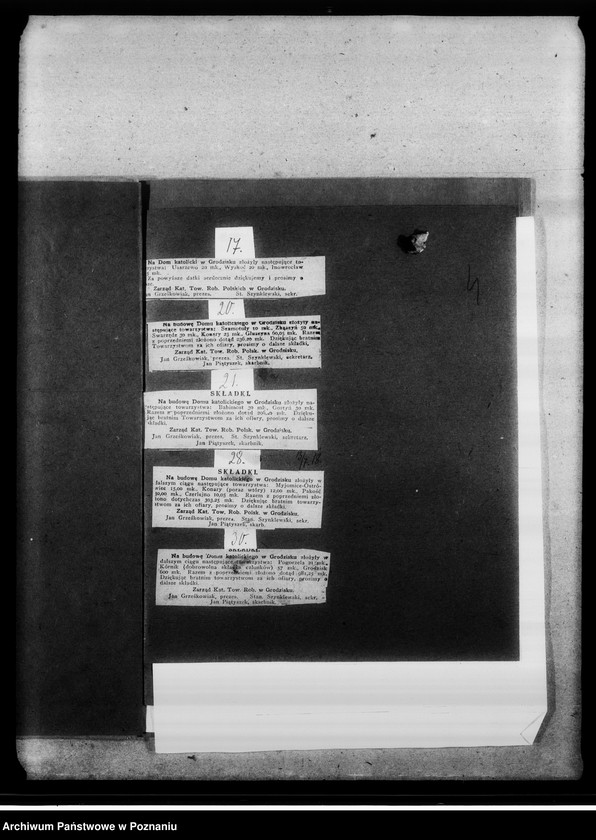 17.
Na Dom katolicki w Grodzisku złożyły następujące to-
Uzarzewo 20 mk., Wyskoć 20 mk., Inowrocław
mk.
Za powyższe datki serdecznie dziękujemy i prosimy o
Zarząd Kat. Tow. Rob. Polskich w Grodzisku.
Jan Grześkowiak, prezes. St. Szynklewski, sekr.
20.
Na budowę Domu katolickiego w Grodzisku złożyły na-
stępujące towarzystwa: Szamotuły 10 mk., Zbąszyń 50 mk.,
Swarzędz 70 mk., Konary 25 mk., Głuszyna 60,05 mk. Razem
z poprzedniemi złożono dotąd 256,20 mk. Dziękując bratnim
Towarzystwom za ich ofiary, prosimy o dalsze składki.
Zarząd Kat. Tow. Rob. Polsk. w Grodzisku,
Jan Grześkowiak, prezes. St. Szynklewski, sekretarz,
Jan Piętyszek, skarbnik.
21.
SKŁADKI.
Na budowę Domu katolickiego w Grodzisku złożyły na-
stępujące towarzystwa: Babimost 30 mk., Gostyń 50 mk.
Razem z poprzedniemi złożono dotąd mk. Dzięku-
jąc bratnim Towarzystwom za ich ofiary, prosimy o dalsze
składki.
Zarząd Kat. Tow. Rob. Polsk. w Grodzisku.
Jan Grześkowiak, prezes, St. Szynklewski, sekretarz,
Jan Piętyszek, skarbnik.
28.
SKŁADKI
Na budowę Domu katolickiego w Grodzisku złożyły w
dalszym ciągu następujące towarzystwa: Myjomice-Ostró-
wiec 15,00 mk., Konary (poraz wtóry) 12,00 mk., Pakość
30,00 mk., Czerlejno 10,05 mk. Razem z poprzedniemi zło-
żono dotychczas 303,25 mk. Dziękując bratnim towarzy-
stwom za ich ofiary, prosimy o dalsze składki.
Zarząd Kat. Tow. Rob. Polsk. w Grodzisku,
Jan Grześkowiak, prezes. Stan. Szynklewski, sekr.
Jan Piętyszek, skarb.
30.
SKŁADKI.
Na budowę Domu katolickiego w Grodzisku złożyły w
dalszym ciągu następujące towarzystwa: Pogorzela 21 mk.,
Kórnik (dobrowolna składka członków) 57 mk., Grodzisk
600 mk. Razem z poprzedniemi złożono dotąd 981,25 mk.
Dziękując bratnim towarzystwom za ich ofiary, prosimy o
dalsze składki.
Zarząd Kat. Tow. Rob. w Grodzisku.
Jan Grześkowiak, prezes. Stan. Szynklewski, sekr.
Jan Piętyszek, skarbnik.
Archiwum Państwowe w Poznaniu